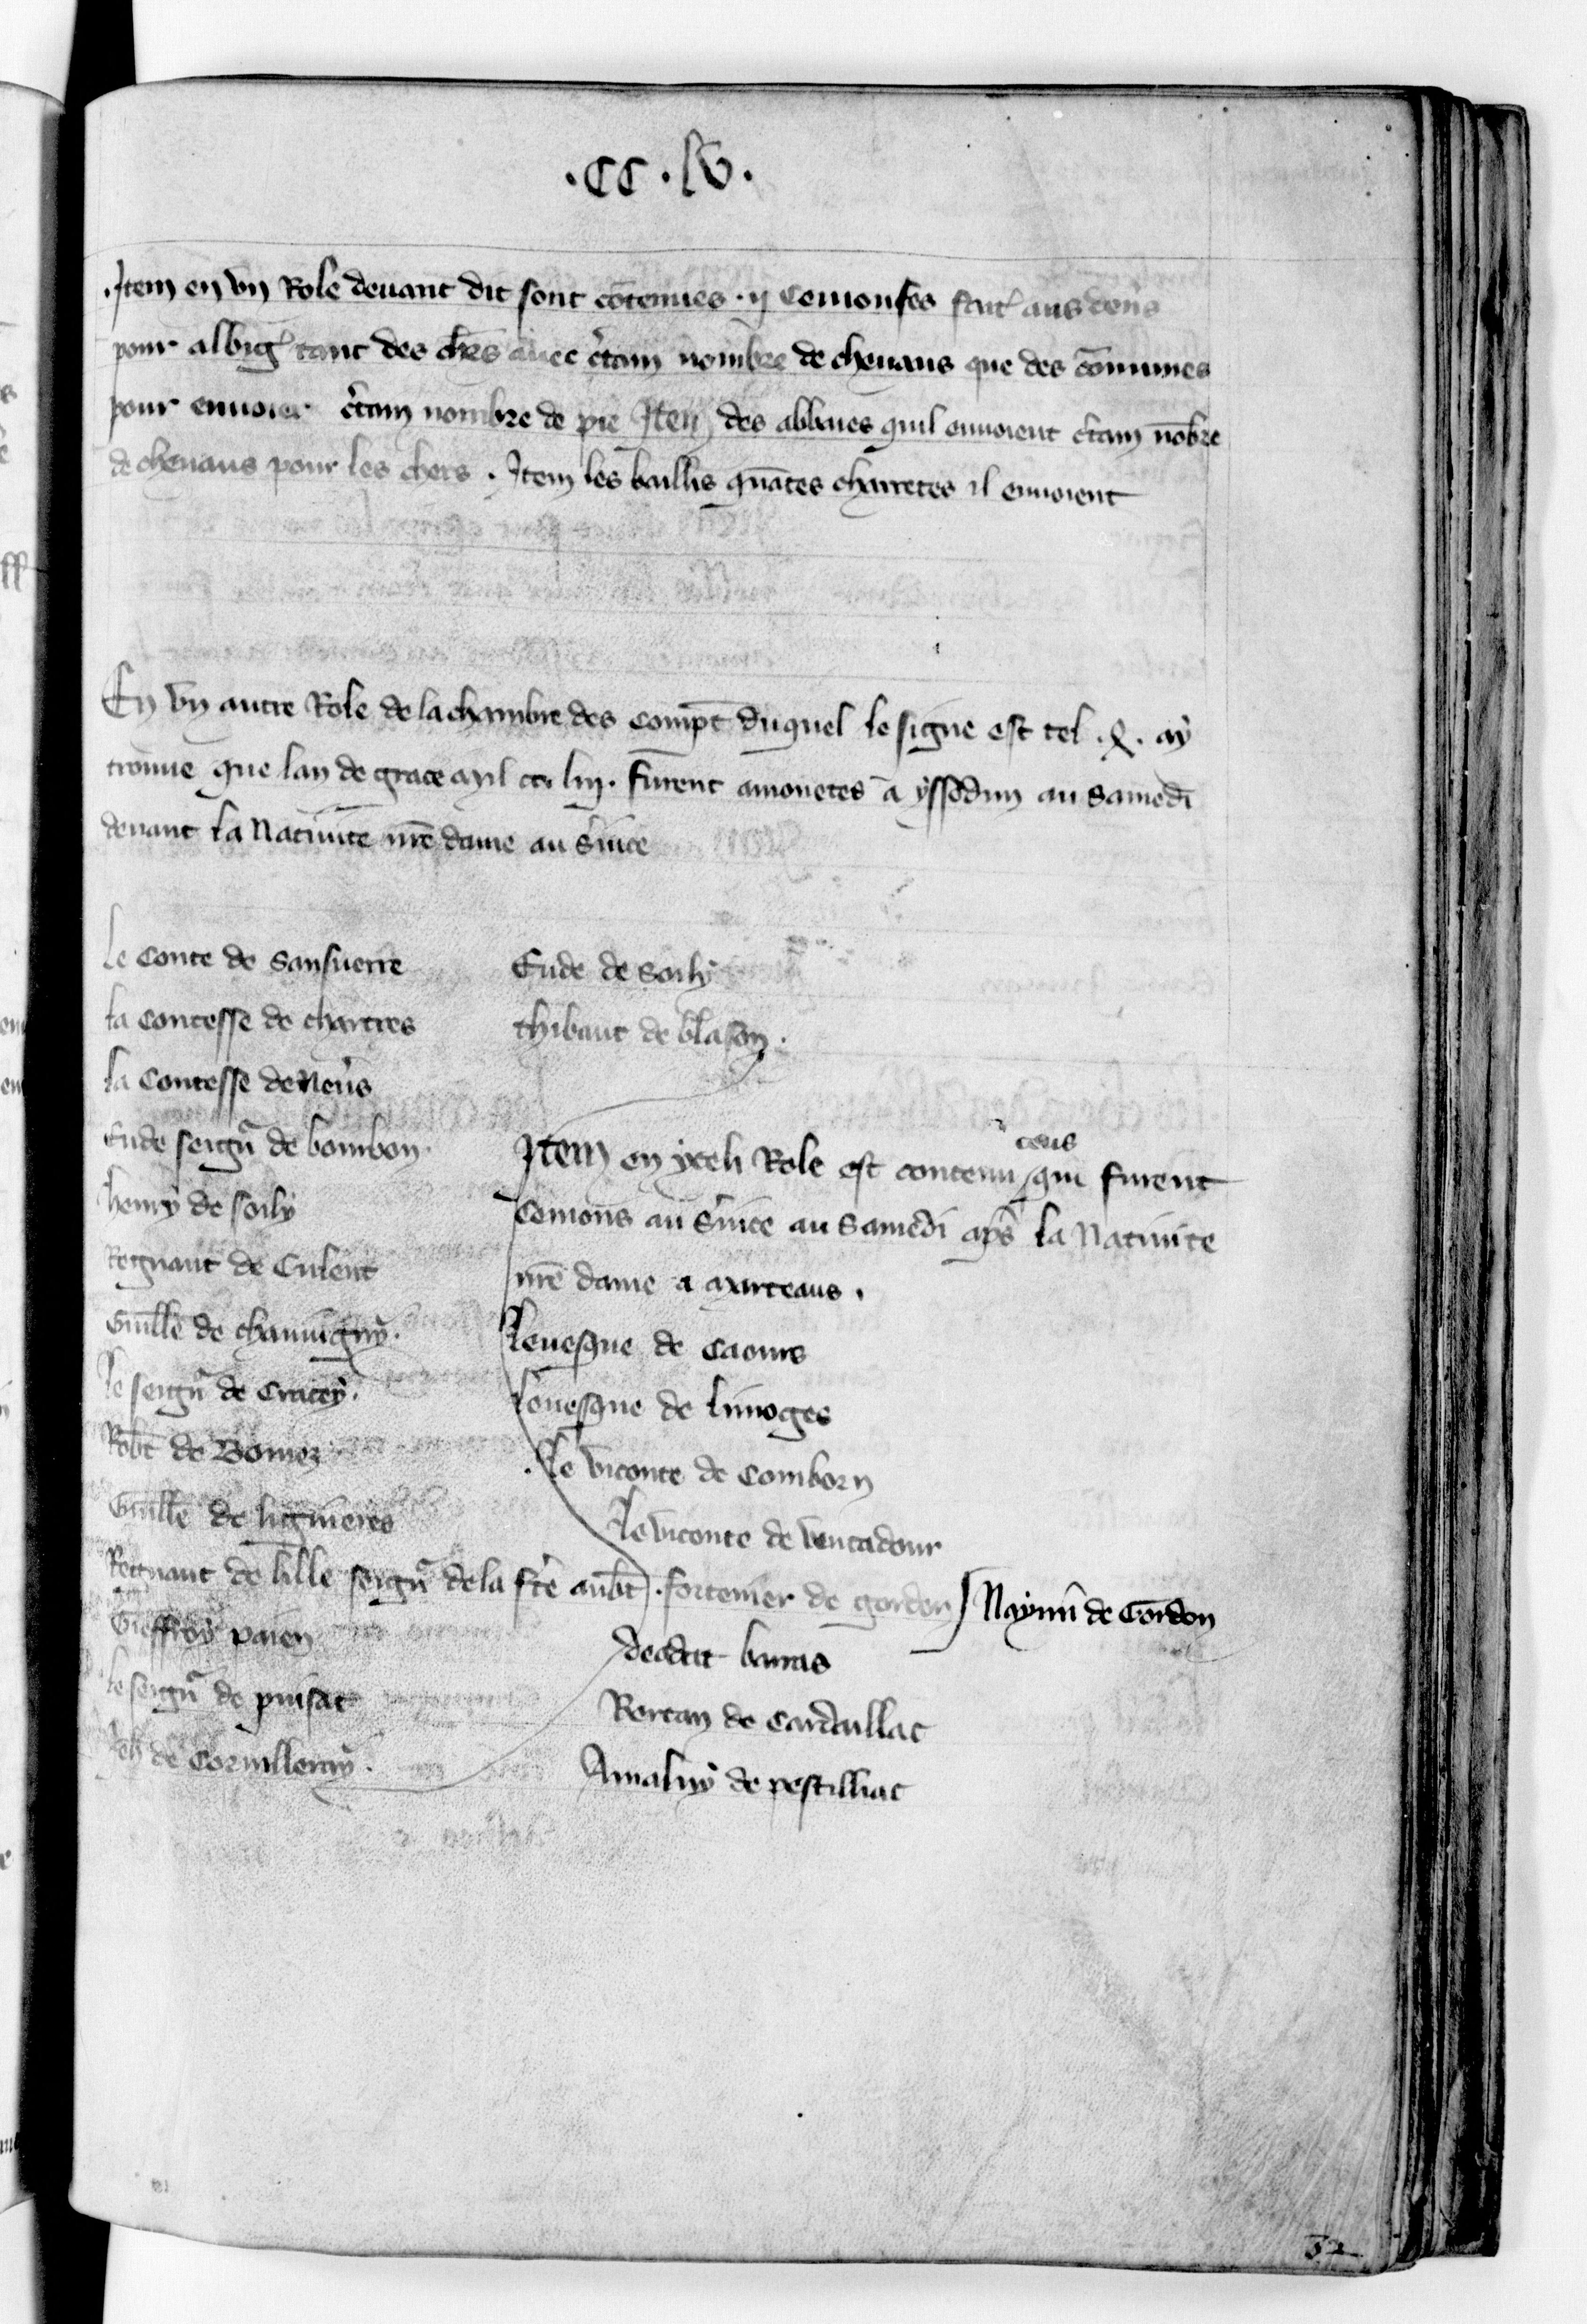 .CC.LV.
Item en un Role devant dit sont contenues .ij Semonses fait aus
pour albig tant des chrs avec ctain nombre de chevaus que des communes
pour envoier ctain nombre de pie Item des abbaies quil envoient ctain nobre
de chevaus pour les chers . Item les baillis quates charretes il envoient
En un autre Role de la chambre des compt duquel le signe est tel . ay
trouve que lan de grace mil cc liij. furent amonetes a yssodun au samedi
devant la Nativite nre dame au svice
Le Conte de Sansuerre
la Contesse de chartres
la Contesse de Nevs
Eude seign de bourbon.
henry de soily
Regnaut de Culent
Guille de chauvigny.
le seign de Cracey.
Robt de Bomez
Guille de lignieres
Regnaut de lille seign de la fte aubt
Gieffroy paien
le seign de puisat
Jeh de Corvilleray.
Eude de Soily
thibaut de blason.
Item en yceli Role est contenu ceus qui furent
Semons au svice au Samedi aps la Nativite
nre dame a marteaus.
levesque de Caours
levesque de limoges
.le viconte de Comborn
le viconte de ventadour
.fortenier de gordon Naymi de Gordon
deodat baras
Bertan de Cardaillac
Amaluy de pestilliac
52